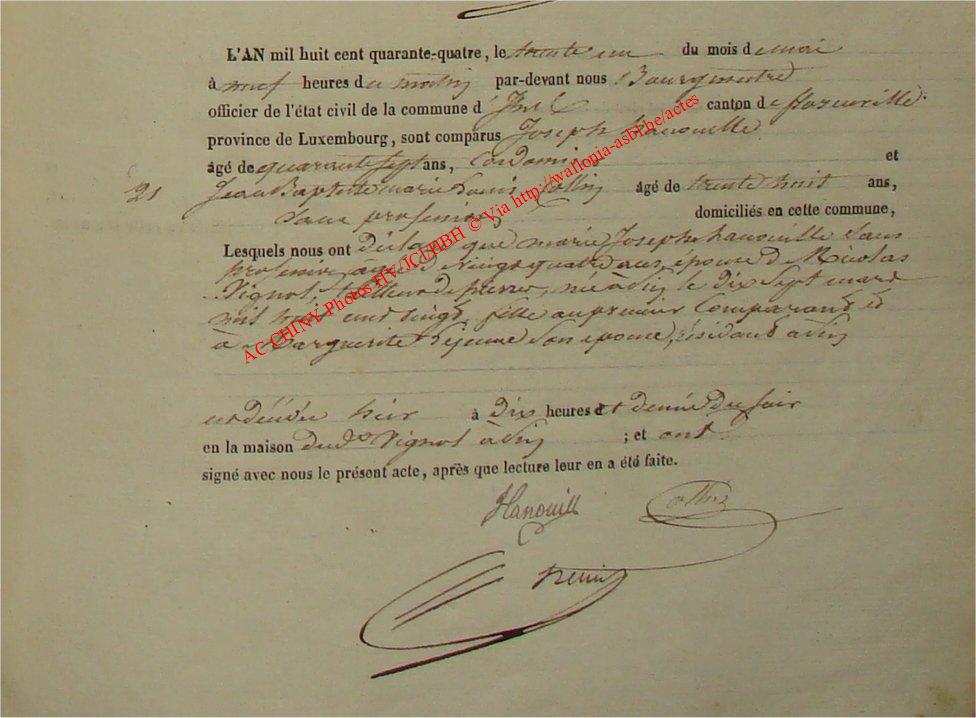 L'AN mil huit cent quarante-quatre, le trente un du mois de mai
à neuf heures du matin par-devant nous Bourgmestre
officier de l'état civil de la commune d'Izel canton de florenville
province de Luxembourg, sont comparus Joseph hanouille
âgé de quarante sept ans, Cordonnier et
21 Jean Baptiste marie Louis âgé de trente huit ans,
Sans profession domiciliés en cette commune,
Lesquels nous ont Déclaré que marie Joseph hanouille Sans
profession âgée de vingt quatre ans épouse de Nicolas
Vignol, tailleur de pierres, née à le Dix Sept mars
mil huit cent vingt, fille au premier Comparant et
à Marguerite Lejeune Son épouse, résidant à
est décédée hier à Dix heures et demie du soir
en la maison dudt Vignol à ; et ont
signé avec nous le présent acte, après que lecture leur en a été faite.
Hanouill
AC CHINY Photos HV JCL BBH © Via http://wallonia-asbl.be/actes